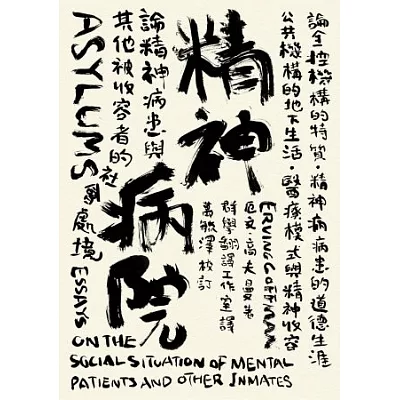 論全控機構的特質・精神病病患的道德生涯
公共機構的地下生活・醫療模式與精神收容
精神病院
ERVING GOFFMAN
厄文・高夫曼著
群學翻譯工作室譯
萬毓澤校訂
論精神病患與
其他被收容者的社會處境
ASYLUMS
ESSAYS
ON THE
SOCIAL SITUATION OF MENTAL
PATIENTS AND OTHER INMATES